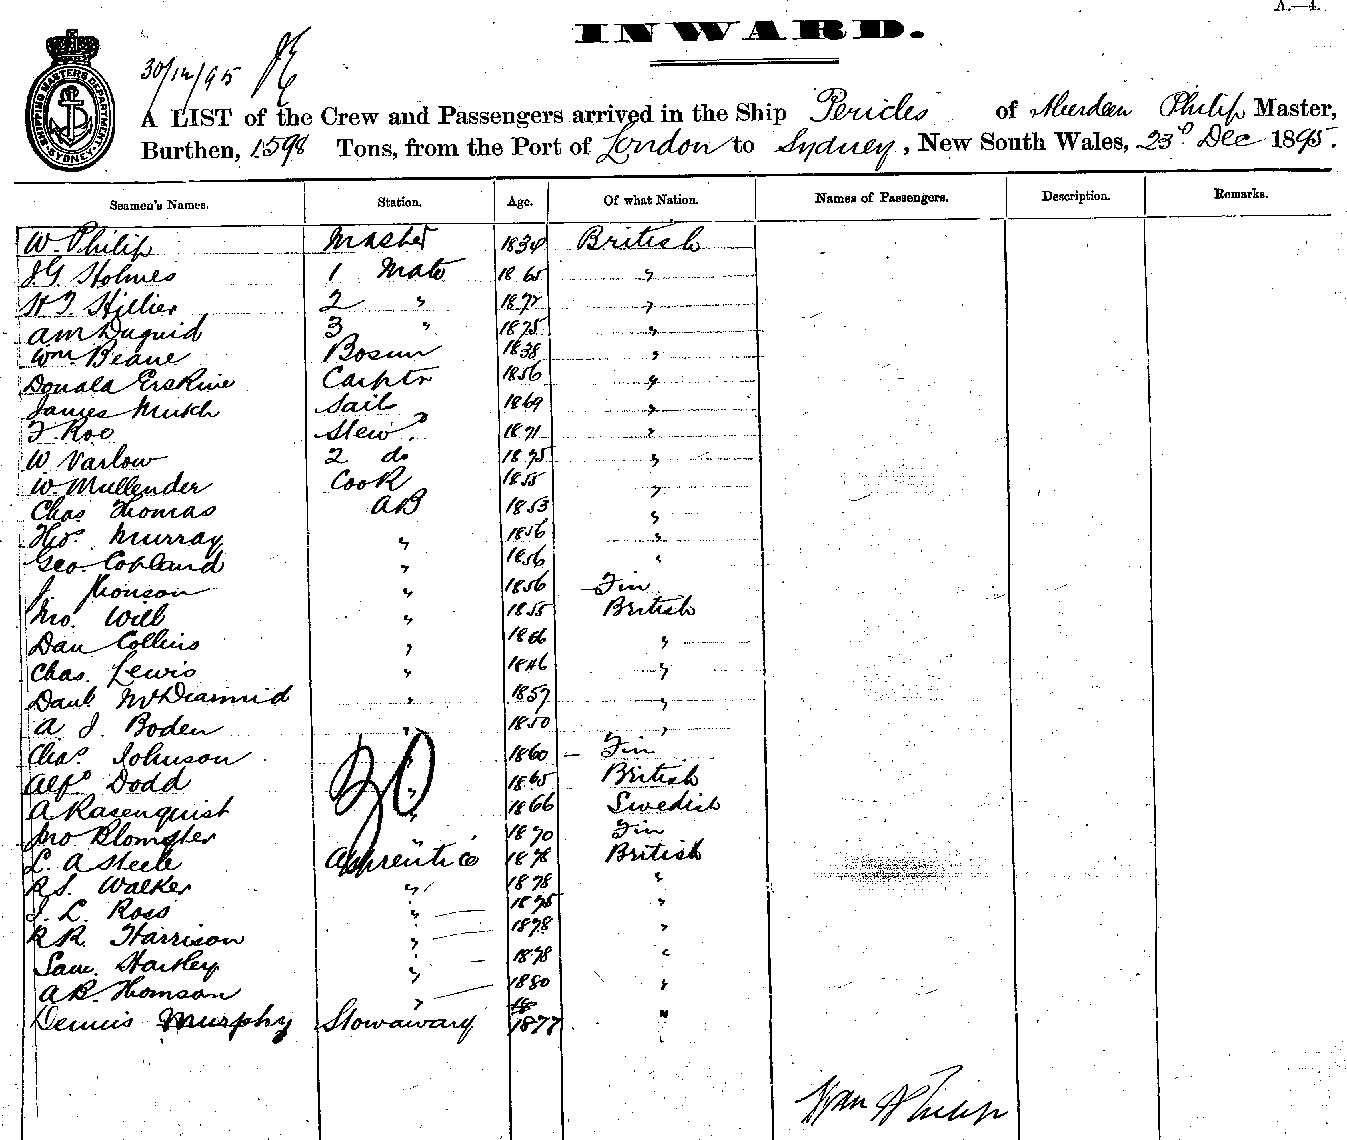 A.—4.
INWARD.
SHIPPING MASTER'S DEPARTMENT SYDNEY
30/12/95
A LIST of the Crew and Passengers arrived in the Ship Pericles of Aberdeen Philip Master,
Burthen, 1598 Tons, from the Port of London to Sydney, New South Wales, 23d Dec 1895.
Seamen's Names. Station. Age. Of what Nation. Names of Passengers. Description. Remarks.
W. Philip Master 1834 British
J.G. Holmes 1 Mate 1865 "
H F. Hillier 2 " 1877 "
A M Duguid 3 " 1875 "
Wm. Beane Bosun 1838 "
Donald Erskine Carptr 1856 "
James Sail 1869 "
F. Roe Stewd. 1871 "
W Varlow 2 do 1875 "
W. Mullender Cook 1855 "
Chas Thomas AB 1853 "
Thos Murray " 1856 "
Geo. Copland " 1856 "
J. " 1856 Fin
Jno. Will " 1855 British
Dan Collins " 1866 "
Chas. Lewis " 1846 "
Danl. McDiarmid " 1857 "
A. J. Boden " 1850 "
Chas. Johnson " 1860 — Fin
Alfd Dodd " 1865 British
A Rasenquist " 1866 Swedish
Jno Blomster " 1870 Fin
L. A Steele Apprentice 1878 British
R S. Walker " 1878 "
J. L. Ross " 1875 "
R R. Harrison " 1878 "
Sam. Hartley " 1878 "
A B. Thomson " 1880 "
Dennis Murphy Stowaway 1877 "
30
Wm Philip